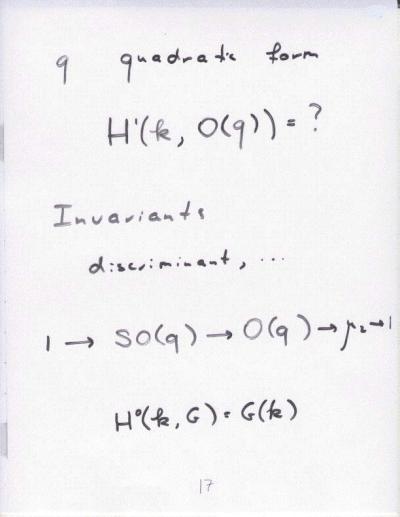 q quadratic form
H¹(k, O(q)) = ?
Invariants
discriminant, ...
1 → SO(q) → O(q) → μ₂ → 1
H⁰(k, G) = G(k)
17